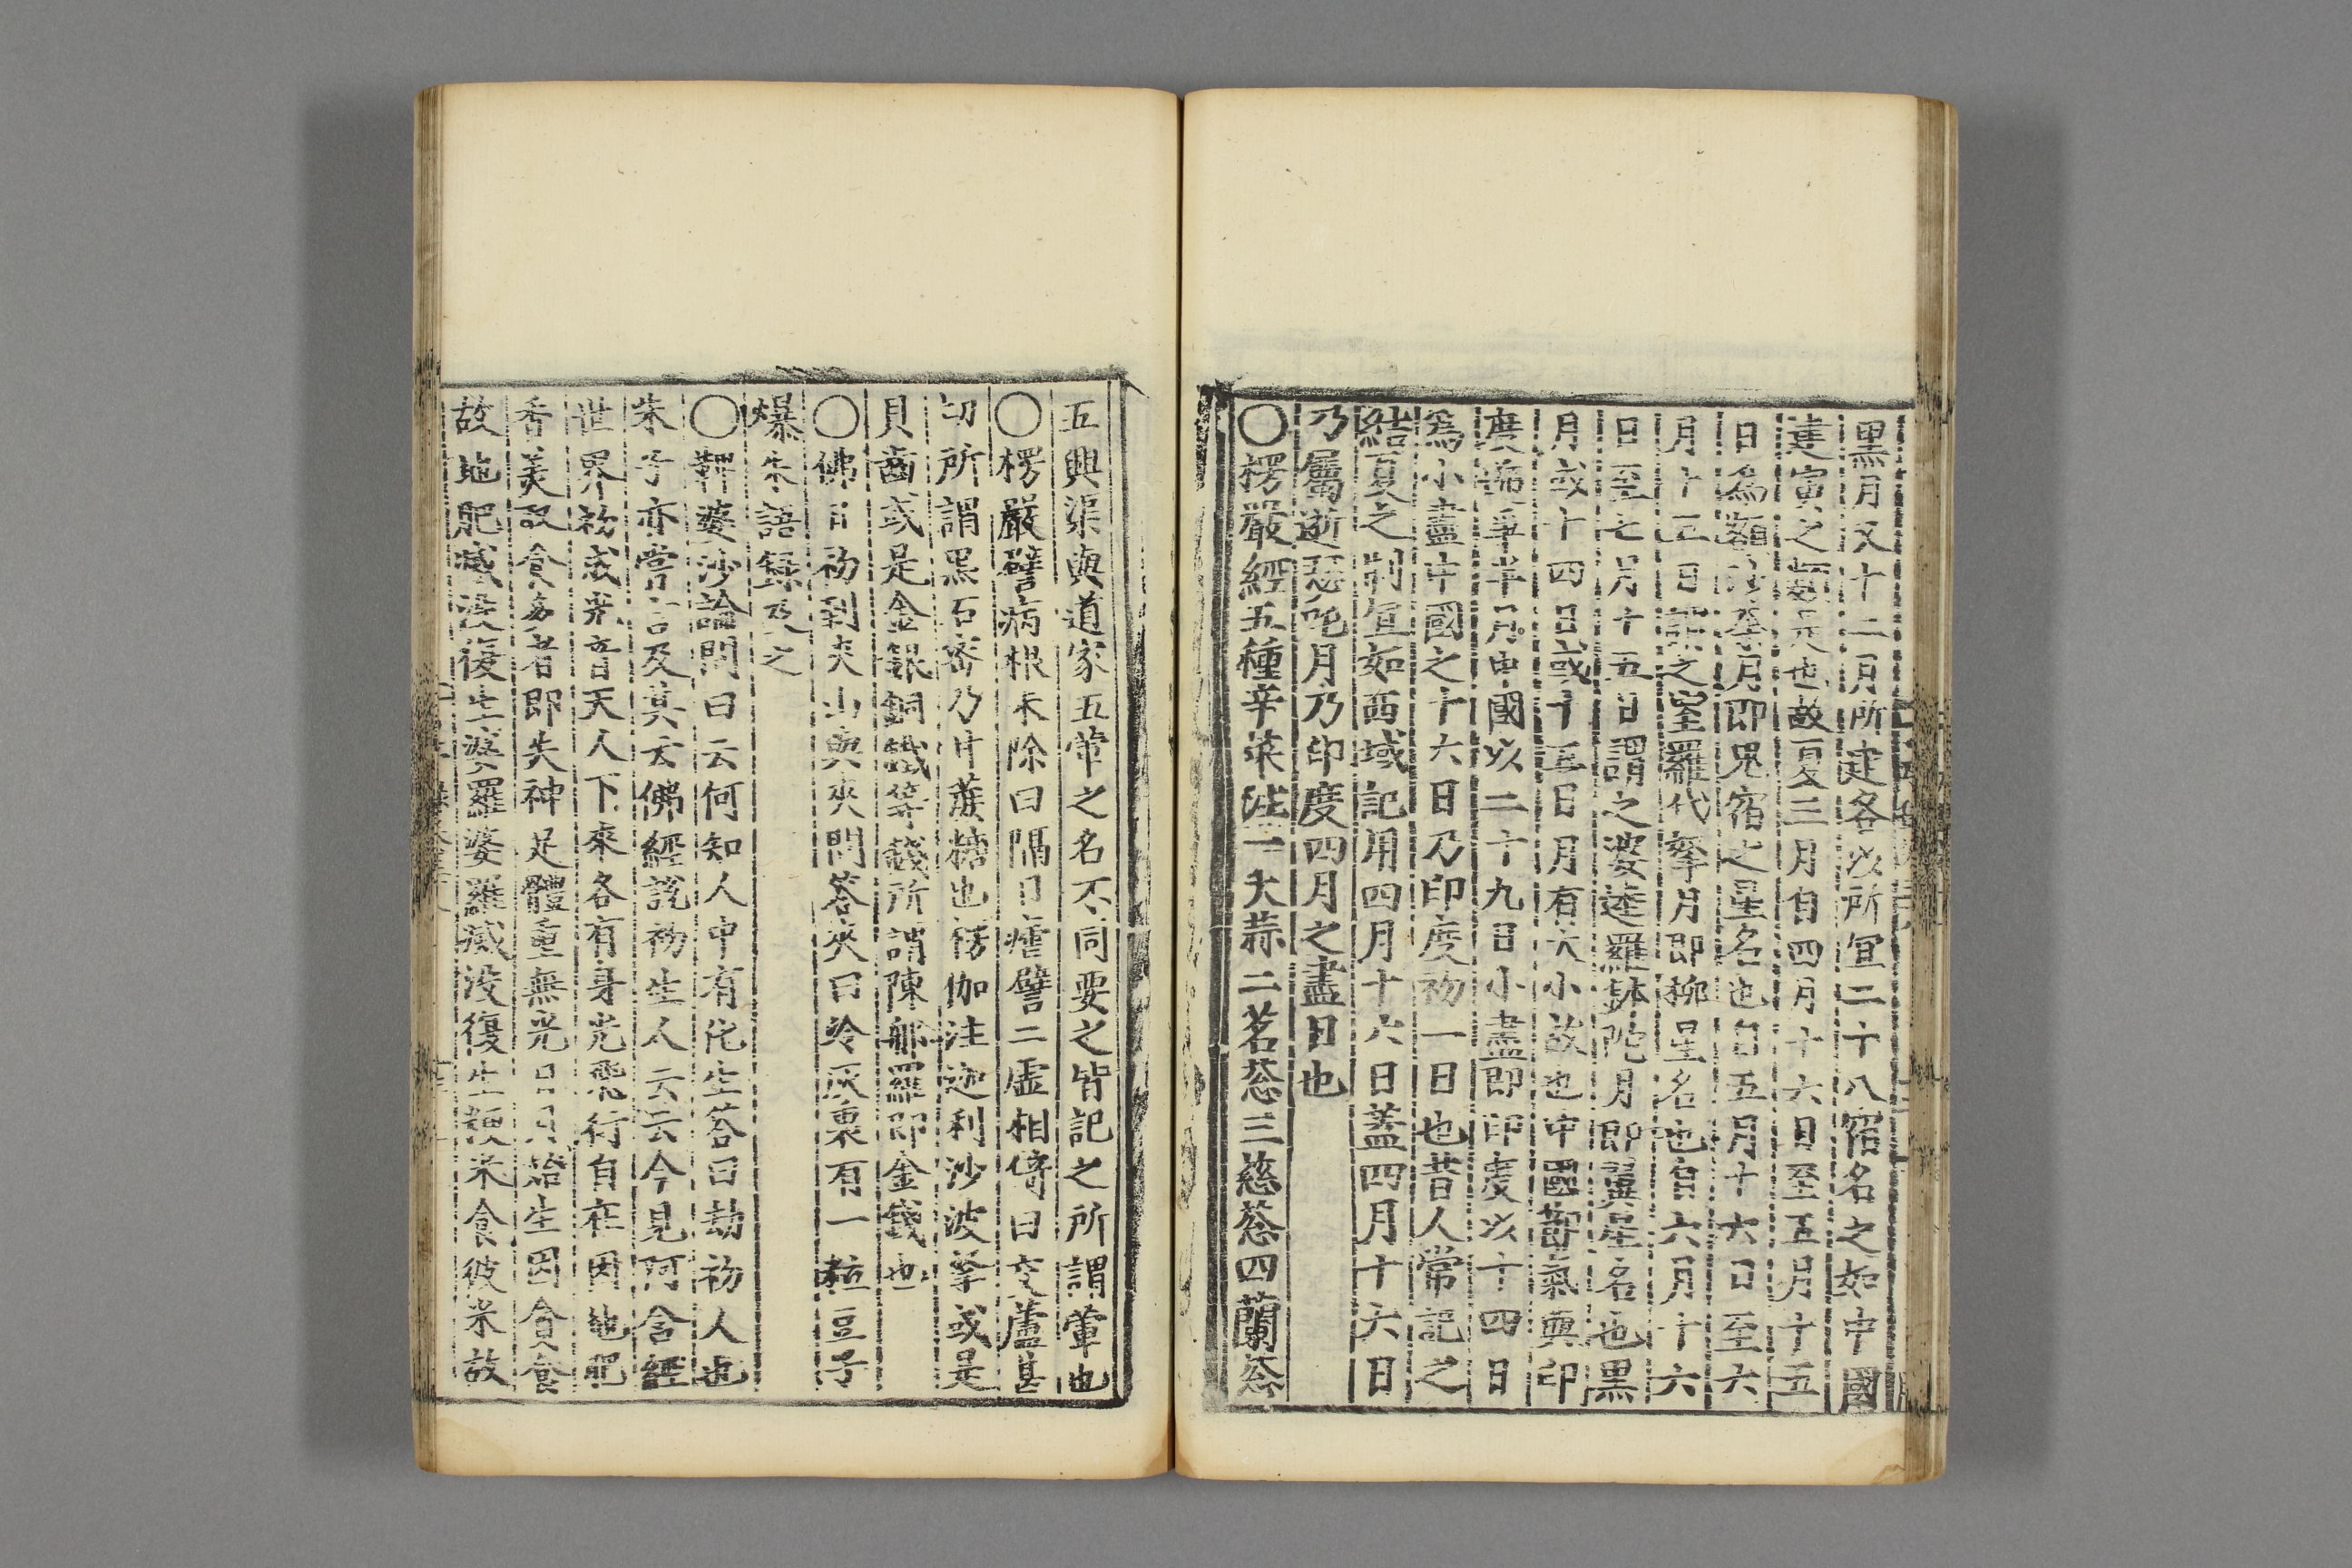 黑月又十二月所建各以所宜二十八宿名之如中國
建寅之類是也故夏三月自四月十六日至五月十五
日爲額沙荼月即鬼宿之星名也自五月十六日至六
月十五日謂之室羅伐拏月即柳星名也自六月十六
日至七月十五日謂之婆達羅鉢陀月即翼星名也黑
月或十四日或十五日月有大小故也中國節氣與印
度遞爭半月中國以二十九日小盡即印度以十四日
爲小盡中國之十六日乃印度初一日也昔人常記之
結夏之制宜如西域記用四月十六日盖四月十六日
乃屬逝瑟吒月乃印度四月之盡日也
〇楞嚴經五種辛菜注一大蒜二茗葱三慈葱四蘭葱
五興渠與道家五葷之名不同要之皆記之所謂葷也
〇楞嚴譬病根未除曰隔日瘧譬二虛相倚曰交蘆甚
切所謂黑石蜜乃甘蔗糖也楞伽注迦利沙波拏或是
貝齒或是金銀銅鐵等錢所謂陳那羅即金錢也
〇佛日初到夾山與夾問答夾曰冷灰裏有一粒豆子
爆朱語錄及之
〇鞞婆沙論問曰云何知人中有化生答曰劫初人也
朱子亦嘗言及其云佛經說初生人云云今見阿含經
世界初成光音天人下來各有身光飛行自在因地肥
香美取食多者即失神足體重無光日月始生因貪食
故地肥滅沒復生婆羅婆羅滅沒復生粳米食彼米故